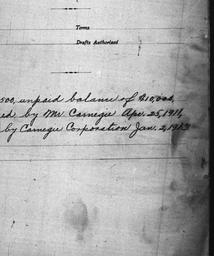 Terms
Drafts Authorized
500, unpaid balance of $10,000,
ed by Mr. Carnegie Apr. 25, 1911,
by Carnegie Corporation Jan. 2, 1913